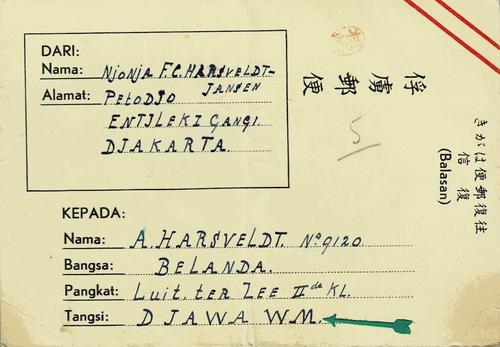 DARI:
Nama: Njonja F.C. HARSVELDT-JANSEN
Alamat: PETODJO
ENTJLEK I GANG I
DJAKARTA.
俘虜郵便
5
往復郵便はがき
復信
(Balasan)
KEPADA:
Nama: A. HARSVELDT. No 9120
Bangsa: BELANDA.
Pangkat: Luit. ter Zee II de KL.
Tangsi: DJAWA WM.